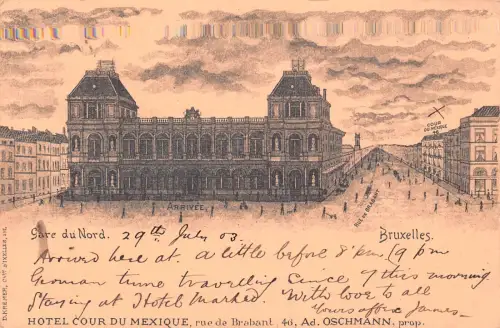 COUR
DU MEXIQUE
ARRIVÉE
RUE DE BRABANT
Gare du Nord. 29th July 03. Bruxelles.
Arrived here at. a little before 8 pm/(9 pm
German time travelling since 6 this morning
Staying at Hotel With love to all
Yours affec James—
HOTEL COUR DU MEXIQUE, rue de Brabant, 46, Ad. OSCHMANN, prop.